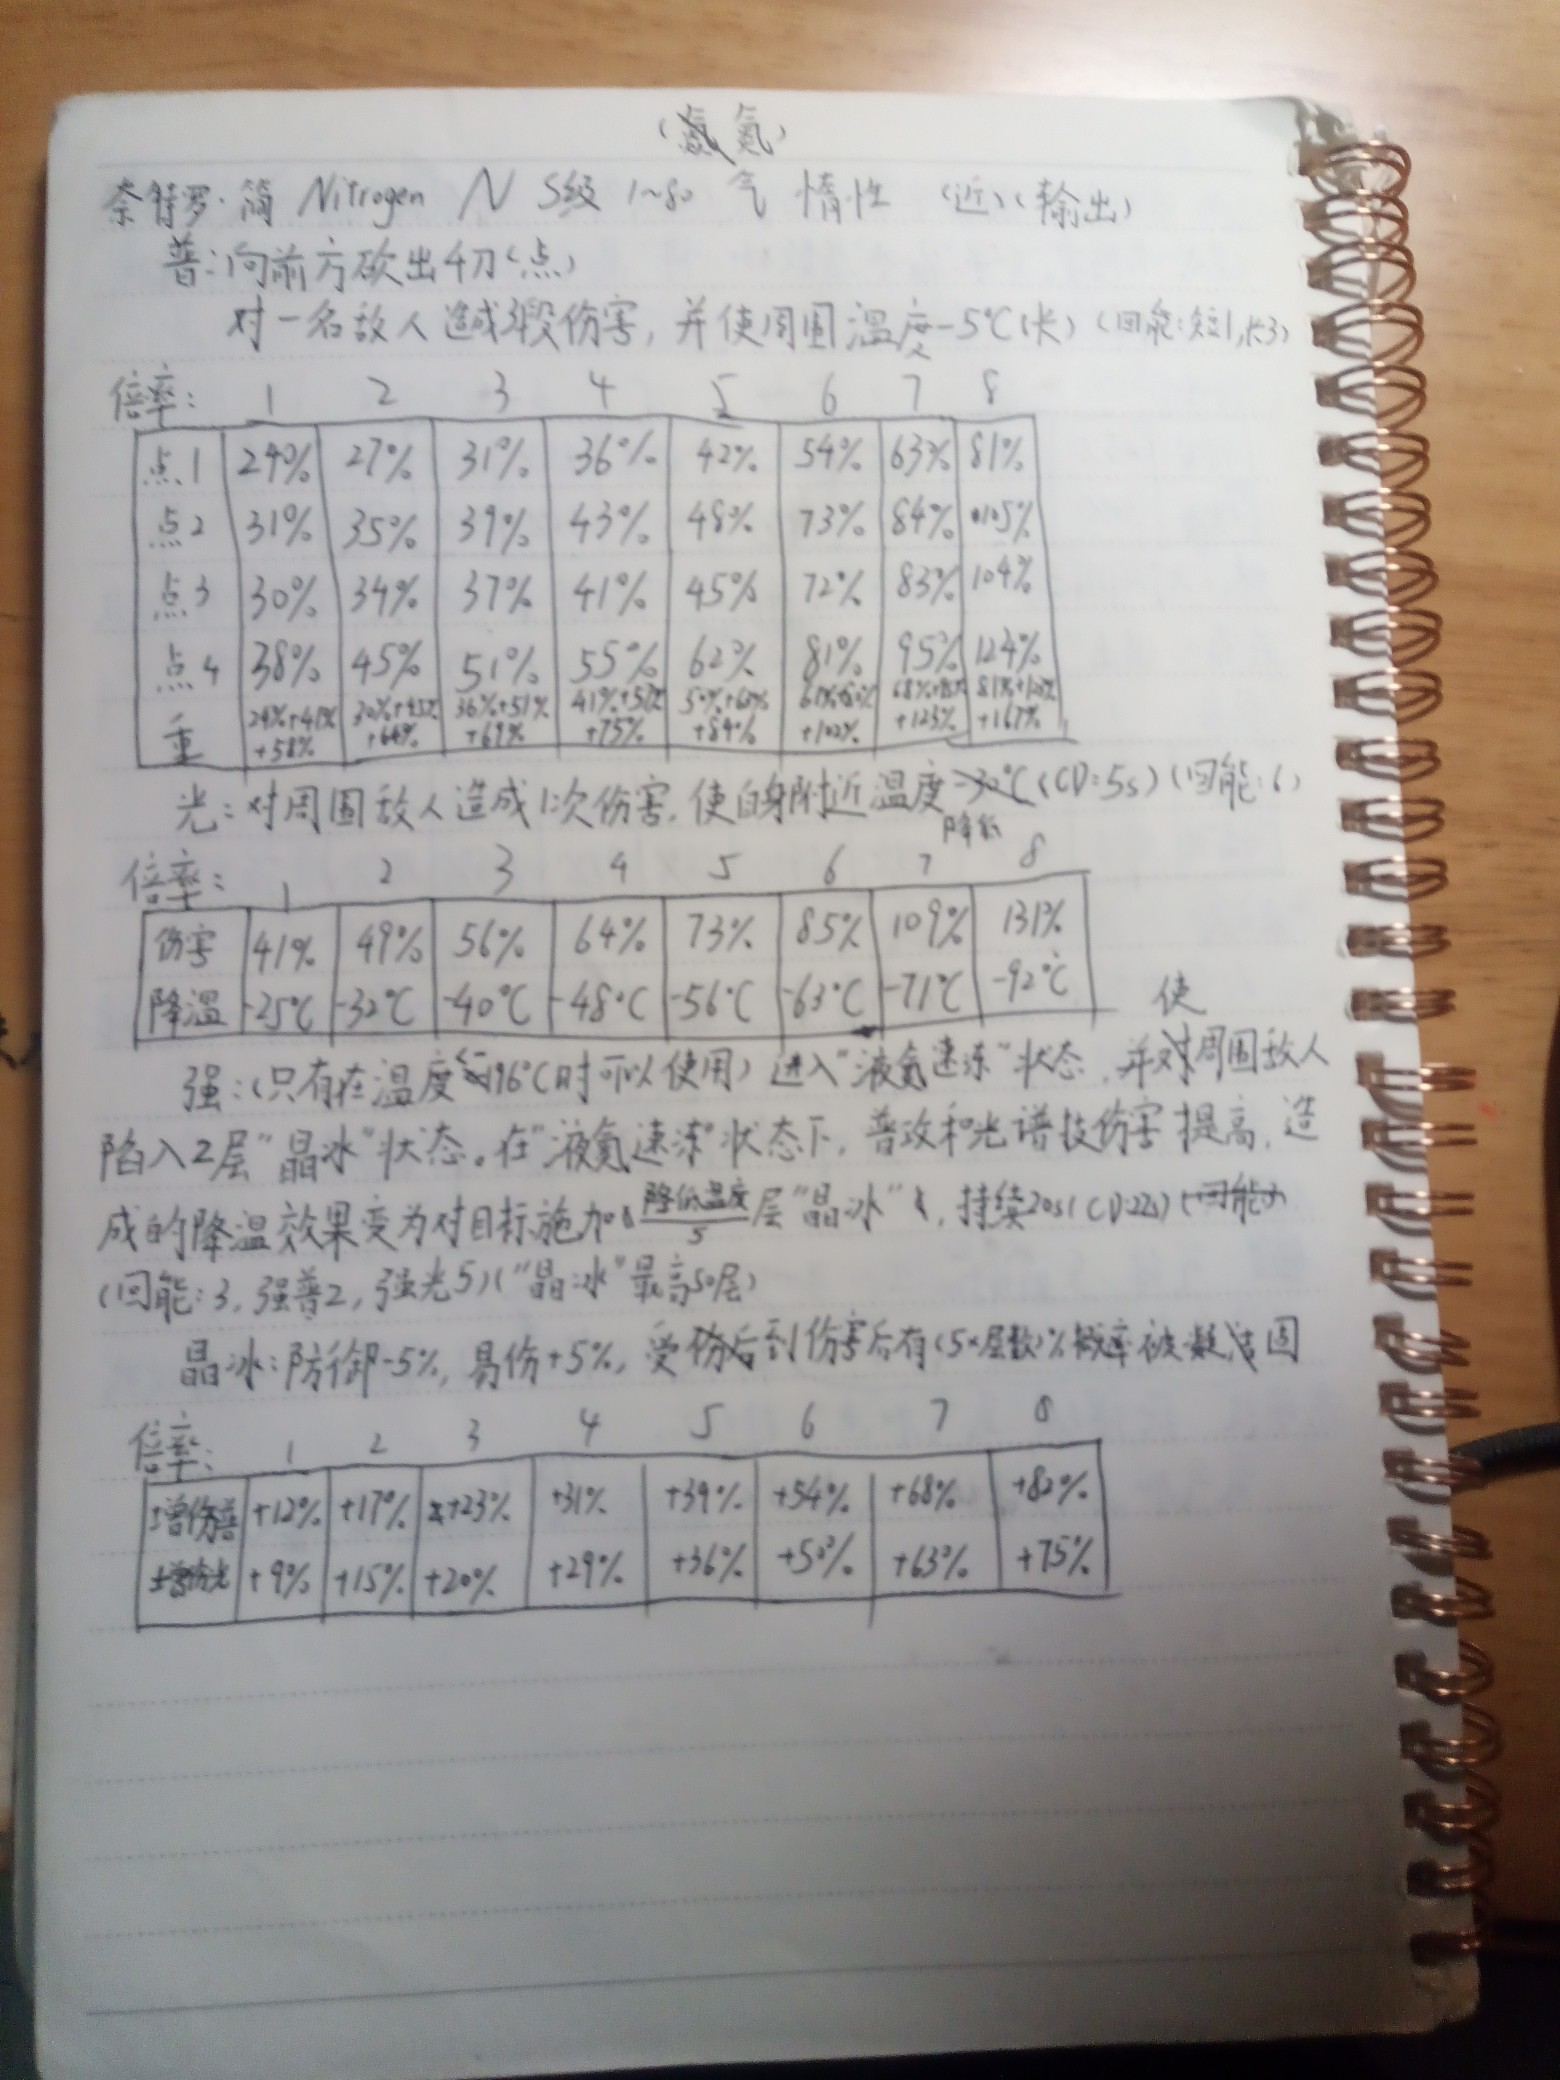 (氮)
奈特罗·简 Nitrogen N S级 1~80 气 惰性 (近)(输出)
普:向前方砍出4刀(点)
对一名敌人造成3段伤害,并使周围温度-5℃(长)(回能:短1,长3)
倍率: 1 2 3 4 5 6 7 8
点1 24% 27% 31% 36% 42% 54% 63% 81%
点2 31% 35% 39% 43% 48% 73% 84% 105%
点3 30% 34% 37% 41% 45% 72% 83% 104%
点4 38% 45% 51% 55% 62% 81% 95% 124%
重 24%+41%+58% 30%+45%+64% 36%+51%+69% +75% +84% +102% +123% +167%
光:对周围敌人造成1次伤害,使自身附近温度降低(CD:5s)(回能:6)
倍率: 1 2 3 4 5 6 7 8
伤害 41% 49% 56% 64% 73% 85% 109% 131%
降温 -25℃ -32℃ -40℃ -48℃ -56℃ -63℃ -71℃ -92℃
强:(只有在温度≤-196℃时可以使用)进入"液氮速冻"状态,并使周围敌人
陷入2层"晶冰"状态。在"液氮速冻"状态下,普攻和光谱技伤害提高,造
成的降温效果变为对目标施加降低温度/5层"晶冰",持续20s(CD:22s)
(回能:3,强普2,强光5)("晶冰"最高50层)
晶冰:防御-5%,易伤+5%,受到伤害后有(5×层数)%概率被凝固
倍率: 1 2 3 4 5 6 7 8
增伤普 +12% +17% +23% +31% +39% +54% +68% +82%
增伤光 +9% +15% +20% +29% +36% +50% +63% +75%